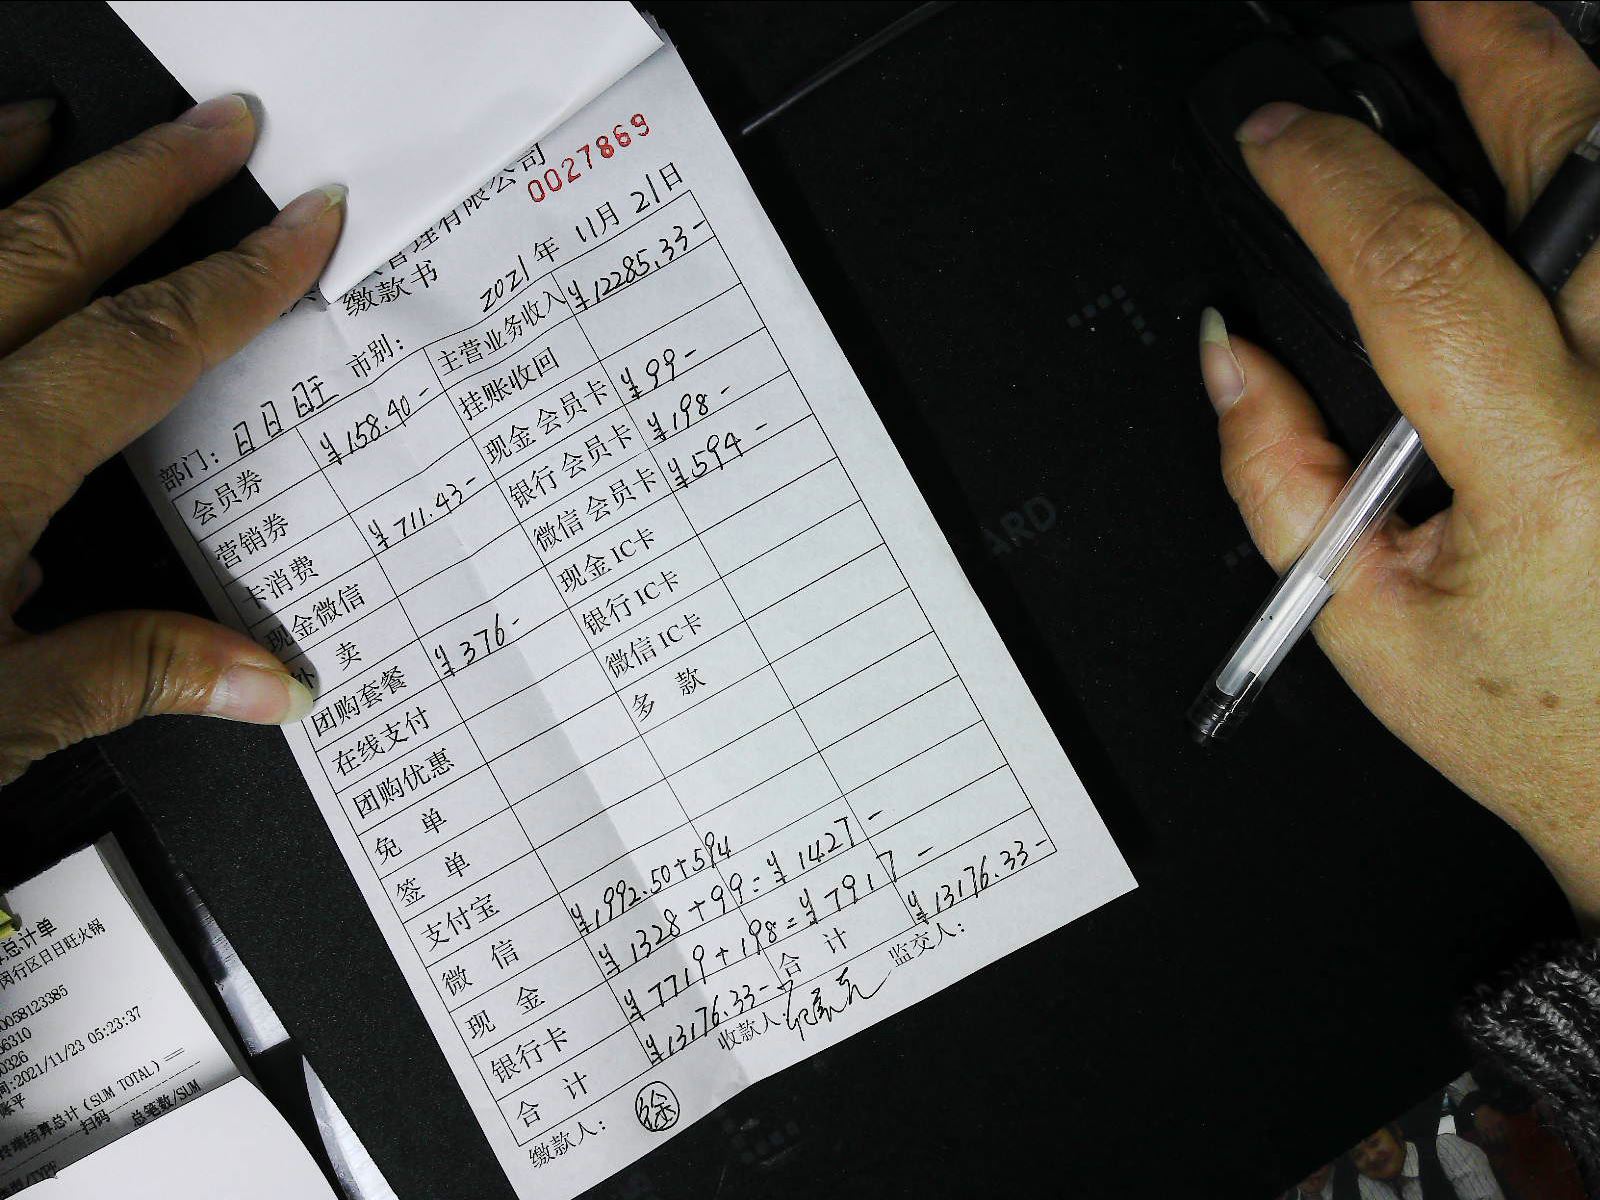 管理有限公司
0027869
缴款书
2021年 11月 21日
部门：日日旺 市别：
会员券 ¥158.40- 主营业务收入 ¥12285.33-
营销券 挂账收回
卡消费 ¥711.43- 现金会员卡 ¥99-
现金微信 银行会员卡 ¥198-
外 卖 微信会员卡 ¥594-
团购套餐 ¥376- 现金IC卡
在线支付 银行IC卡
团购优惠 微信IC卡
免 单 多 款
签 单
支付宝
微 信 ¥1992.50+594
现 金 ¥1328+99=¥1427-
银行卡 ¥7719+198=¥7917-
合 计 ¥13176.33- 合 计 ¥13176.33-
缴款人： 徐 收款人： 监交人：
总计单
闵行区日日旺火锅
0058123385
06310
00326
间:2021/11/23 05:23:37
账平
终端结算总计(SUM TOTAL)
扫码 总笔数/SUM
/TYPE
ARD